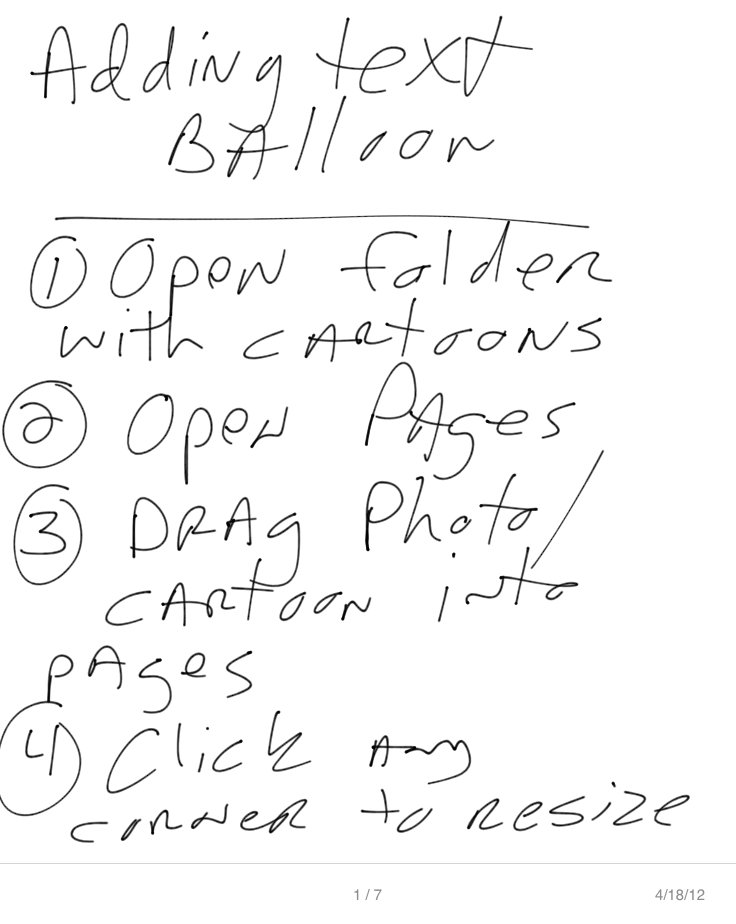 Adding text
BAlloon
① Open folder
with cARtoons
② Open PAges
③ DRAg Photo/
cARtoon into
pAges
④ Click Any
corner to resize
1 / 7
4/18/12